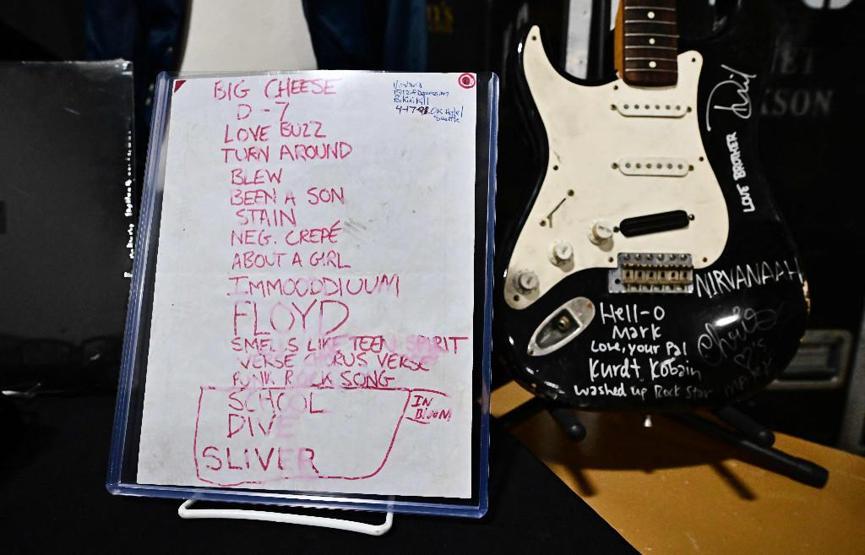 BIG CHEESE
D-7
LOVE BUZZ
TURN AROUND
BLEW
BEEN A SON
STAIN
NEG. CREPÉ
ABOUT A GIRL
IMMOODDIUUM
FLOYD
SMELLS LIKE TEEN SPIRIT
VERSE CHORUS VERSE
PUNK ROCK SONG
SCHOOL
DIVE
SLIVER
IN
BLOOM
Bikini Kill
4-17-91 OK Hotel
Seattle
LOVE BROTHER
NIRVANAAH
Hell-O
Mark
Love, your Pal
Kurdt Kobain
washed up Rock Star
KSON